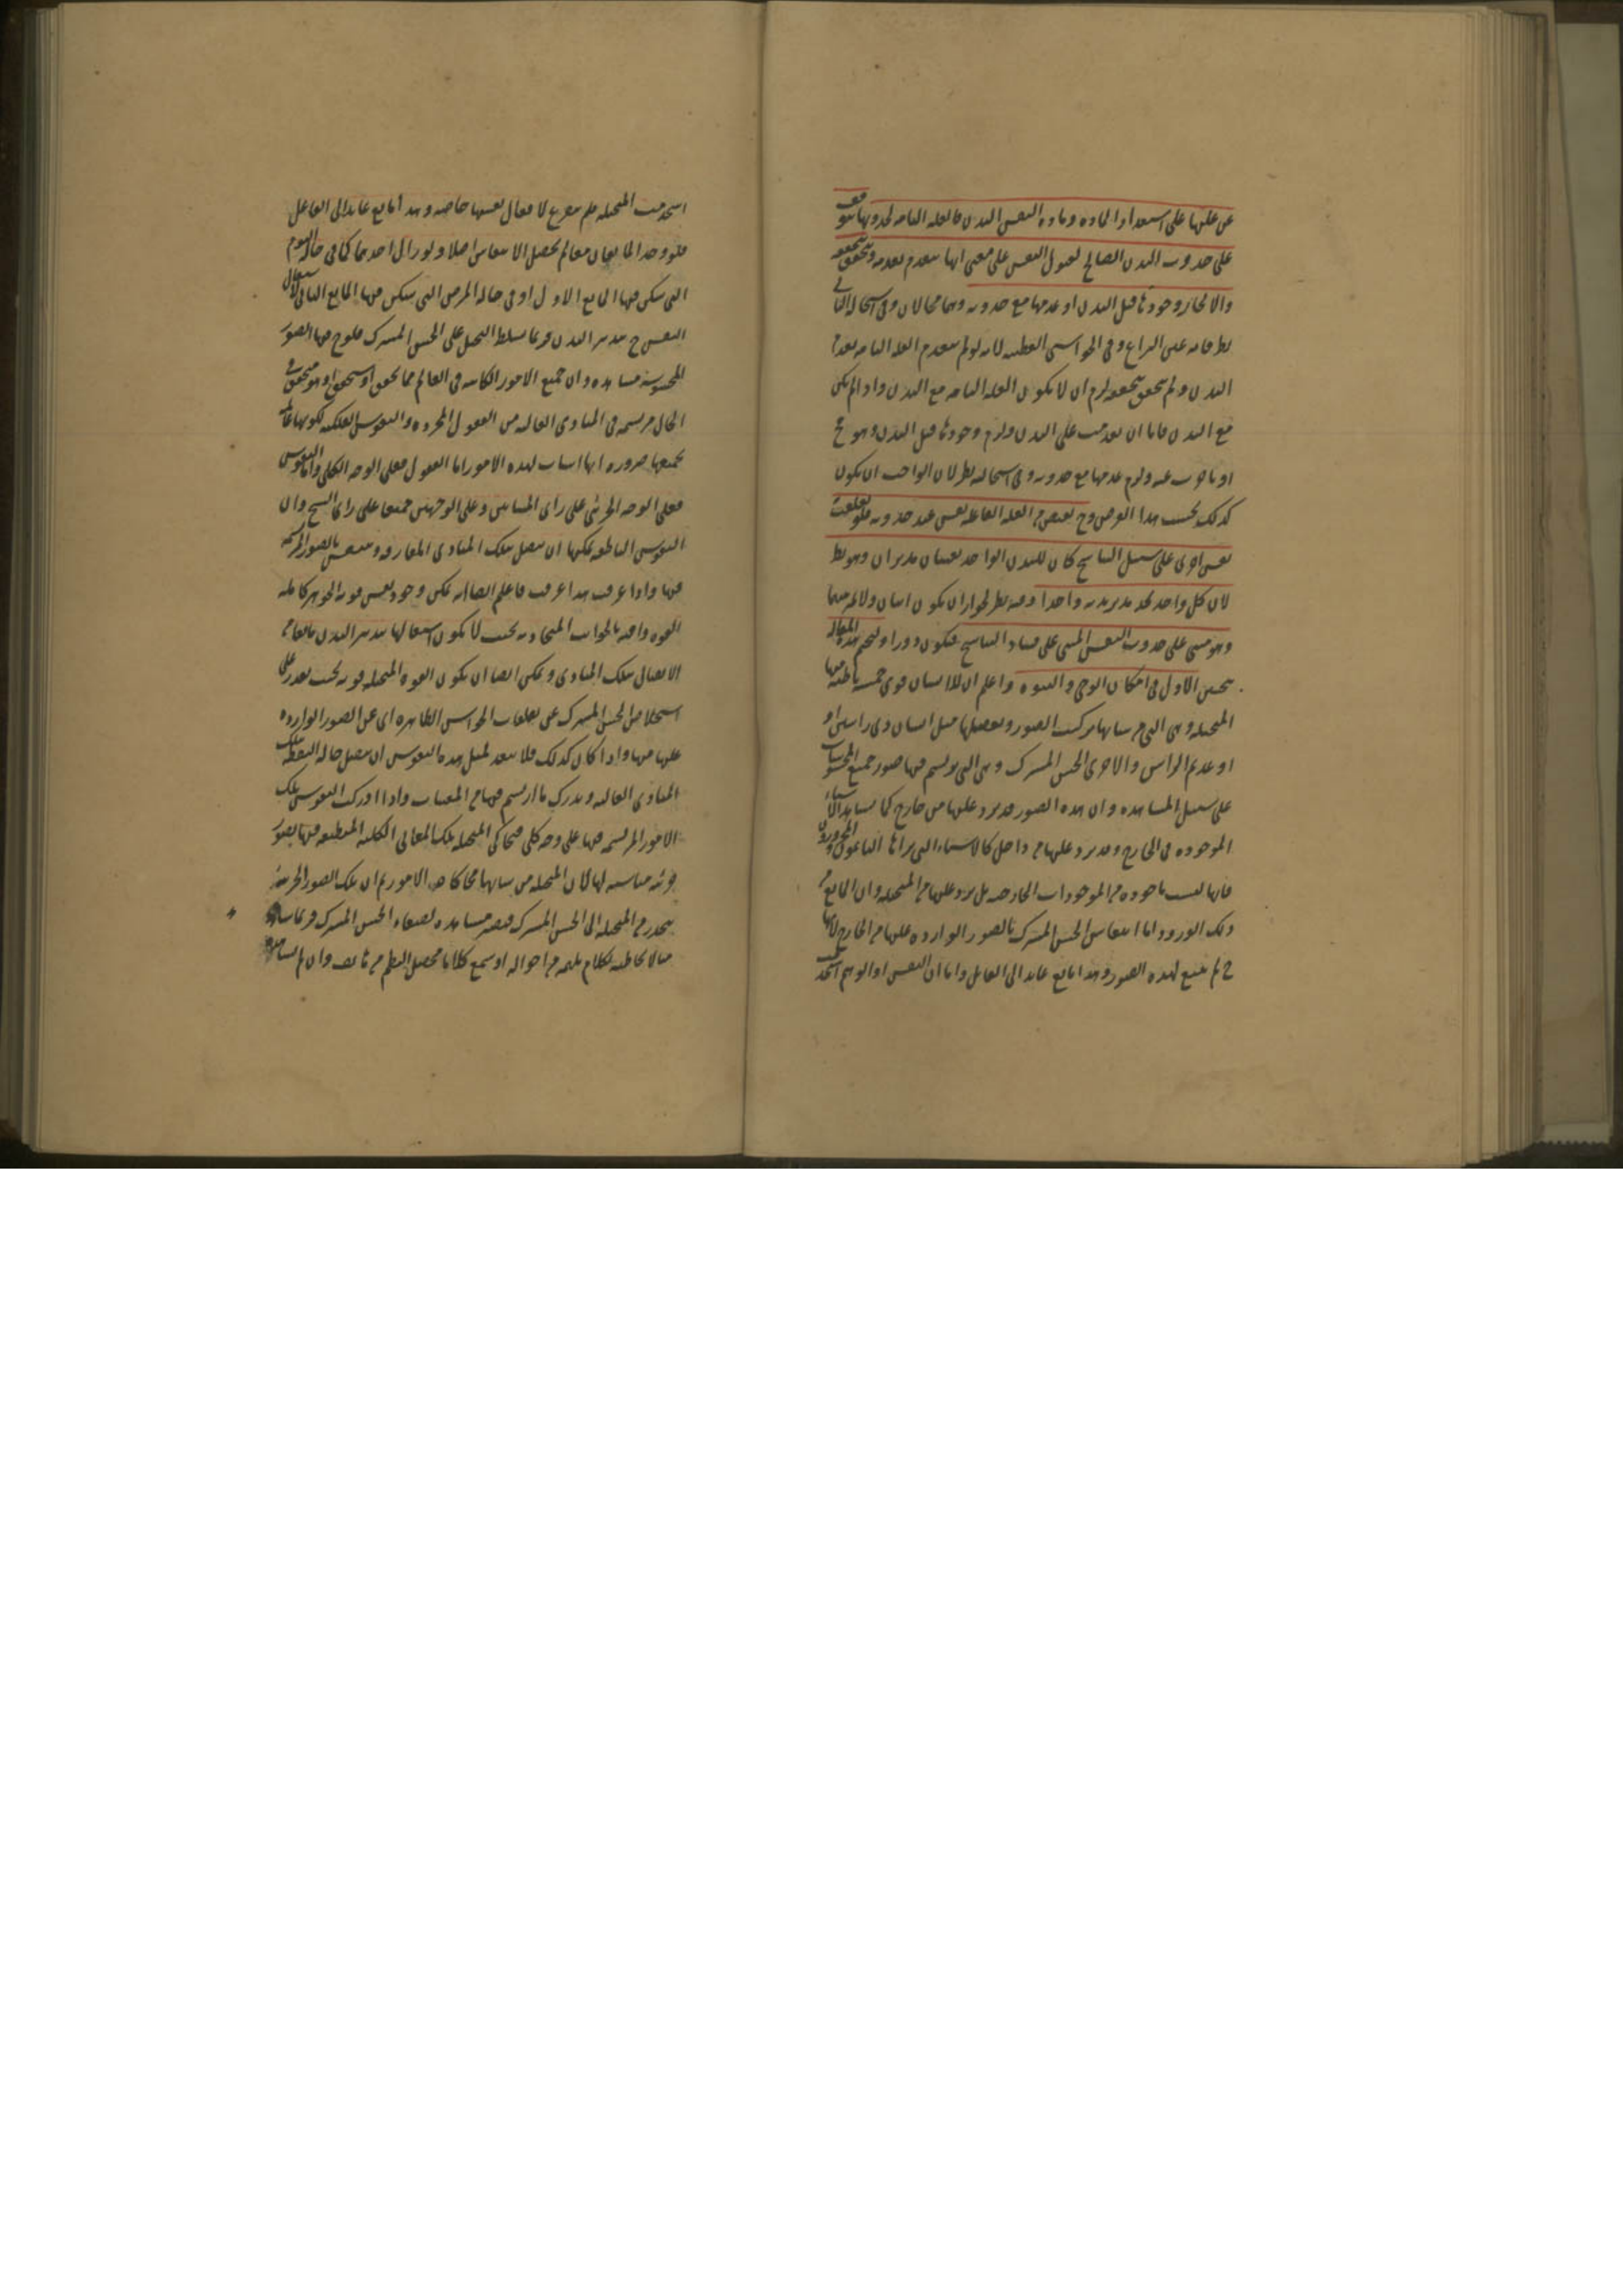 عن علتها على استعداد المادة ومادة النفس البدن فالعلة التامة لحدوثها يتوقف
على حدوث البدن الصالح لقبول النفس على معنى انها تنعدم بعدمه وتتحقق بتحققه
والا لجاز وجودها قبل البدن او عدمها مع حدوثه وهما محالان وفى استحالة الثانى
نظر فانه عين النزاع وفى الحواشى القطبية لانه لو لم تنعدم العلة التامة بعدم
البدن ولم تتحقق بتحققه لزم ان لا يكون العلة التامة مع البدن واذا لم يكن
مع البدن فاما ان تقدمت على البدن ولزم وجودها قبل البدن وهو مح
او تاخرت عنه ولزم عدمها مع حدوثه وفى استحالته نظر لان الواجب ان يكون
كذلك بحسب هذا الفرض وح يفيض من العلة الفاعلة نفس عند حدوثه فلو تعلقت
نفس اخرى على سبيل التناسخ كان للبدن الواحد نفسان مدبران وهو بط
لان كل واحد يجد مدبر بدنه واحدا وفيه نظر لجواز ان يكون اثنان ولا تميز بينهما
وهو مبنى على حدوث النفس المبنى على فساد التناسخ فيكون دورا ولنختم هذه المقالة
ببحثين الاول فى امكان الوحى والنبوة واعلم ان للانسان قوى خمسة باطنة منها
المتخيلة وهى التى من شانها تركيب الصور وتفصيلها مثل انسان ذى راسين او
او عديم الراس والاخرى الحس المشترك وهى التى يرتسم فيها صور جميع المحسوسات
على سبيل المشاهدة وان هذه الصور قد يرد عليها من خارج كما نشاهد الاشياء
الموجودة فى الخارج وقد يرد عليها من داخل كالاشياء التى يراها النائمون والمحرورون
فانها ليست ماخوذة من الموجودات الخارجية بل يرد عليها من المتخيلة وان المانع من
ذلك الورود اما انتقاش الحس المشترك بالصور الواردة عليها من الخارج لانها
ح لم تتسع لهذه الصور وهذا مانع عائد الى القابل واما ان النفس او الوهم استخد
استخدمت المتخيلة فلم تتفرغ لافعال نفسها خاصة وهذا مانع عائد الى الفاعل
فلو وجد المانعان معا لم يحصل الانتقاش اصلا ولو زال احدهما كما فى حالة النوم
التى يسكن فيها المانع الاول او فى حالة المرض التى يسكن فيها المانع الثانى لاشتغال
النفس ح بتدبير البدن فربما تسلط التخيل على الحس المشترك فلوح فيها الصور
المحسوسة مشاهدة وان جميع الامور الكائنة فى العالم مما تحقق او سيتحقق او هو متحقق فى
الحال مرتسمة فى المبادى العالية من العقول المجردة والنفوس الفلكية لكونها عالمة
بجميعها ضرورة انها اسباب لهذه الامور اما العقول فعلى الوجه الكلى واما النفوس
فعلى الوجه الجزئى على راى المشائين وعلى الوجهين جميعا على راى الشيخ وان
النفوس الناطقة يمكنها ان تتصل بتلك المبادى المفارقة وتنتقش بالصور المرتسمة
فيها واذا عرفت هذا عرفت فاعلم ايضا انه يمكن وجود نفس قوية الجوهر كاملة
القوة وافية بالجوانب المتجاذبة بحيث لا يكون اشتغالها بتدبير البدن عائقا من
الاتصال بتلك المبادى ويمكن ايضا ان يكون القوة المتخيلة قوية بحيث تقدر على
استخلاص الحس المشترك عن تعلقات الحواس الظاهرة اى عن الصور الواردة
عليها منها واذا كان كذلك فلا يبعد لمثل هذه النفوس ان تتصل حالة اليقظة بتلك
المبادى العالية وتدرك ما ارتسم فيها من المغيبات واذا ادركت النفوس تلك
الامور المرتسمة فيها على وجه كلى فتحاكى المتخيلة تلك المعانى الكلية المنطبعة فيها بصور
جزئية مناسبة لها لان المتخيلة من شانها محاكاة الامور ثم ان تلك الصور الجزئية
تنحدر من المتخيلة الى الحس المشترك فتصير مشاهدة لصفاء الحس المشترك فربما شاهد
مثالا يخاطبه بكلام يلهمه من احواله او سمع كلاما محصل النظم من هاتف وان لم يشاهده